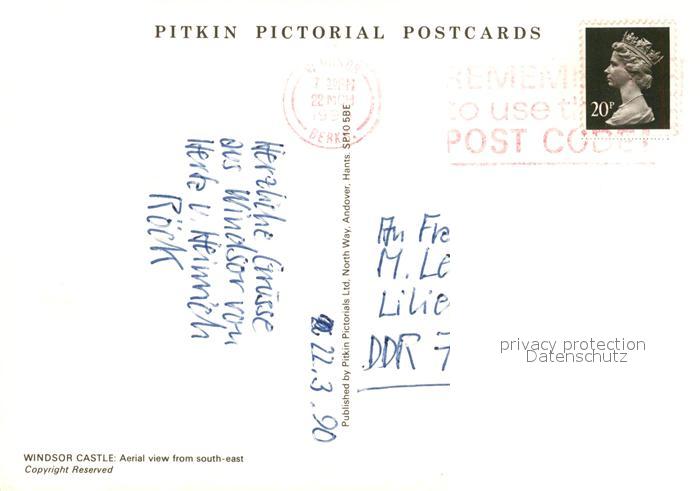 PITKIN PICTORIAL POSTCARDS
WINDSOR
22 MCH
BERKS
REMEM
to use t
POST CODE
20P
Herzliche Grüsse
aus Windsor von
Herta u. Heinrich
Röck
22.3.90
Published by Pitkin Pictorials Ltd, North Way, Andover, Hants. SP10 5BE
An Fr
M. Le
Lilie
DDR 7
privacy protection
Datenschutz
WINDSOR CASTLE: Aerial view from south-east
Copyright Reserved